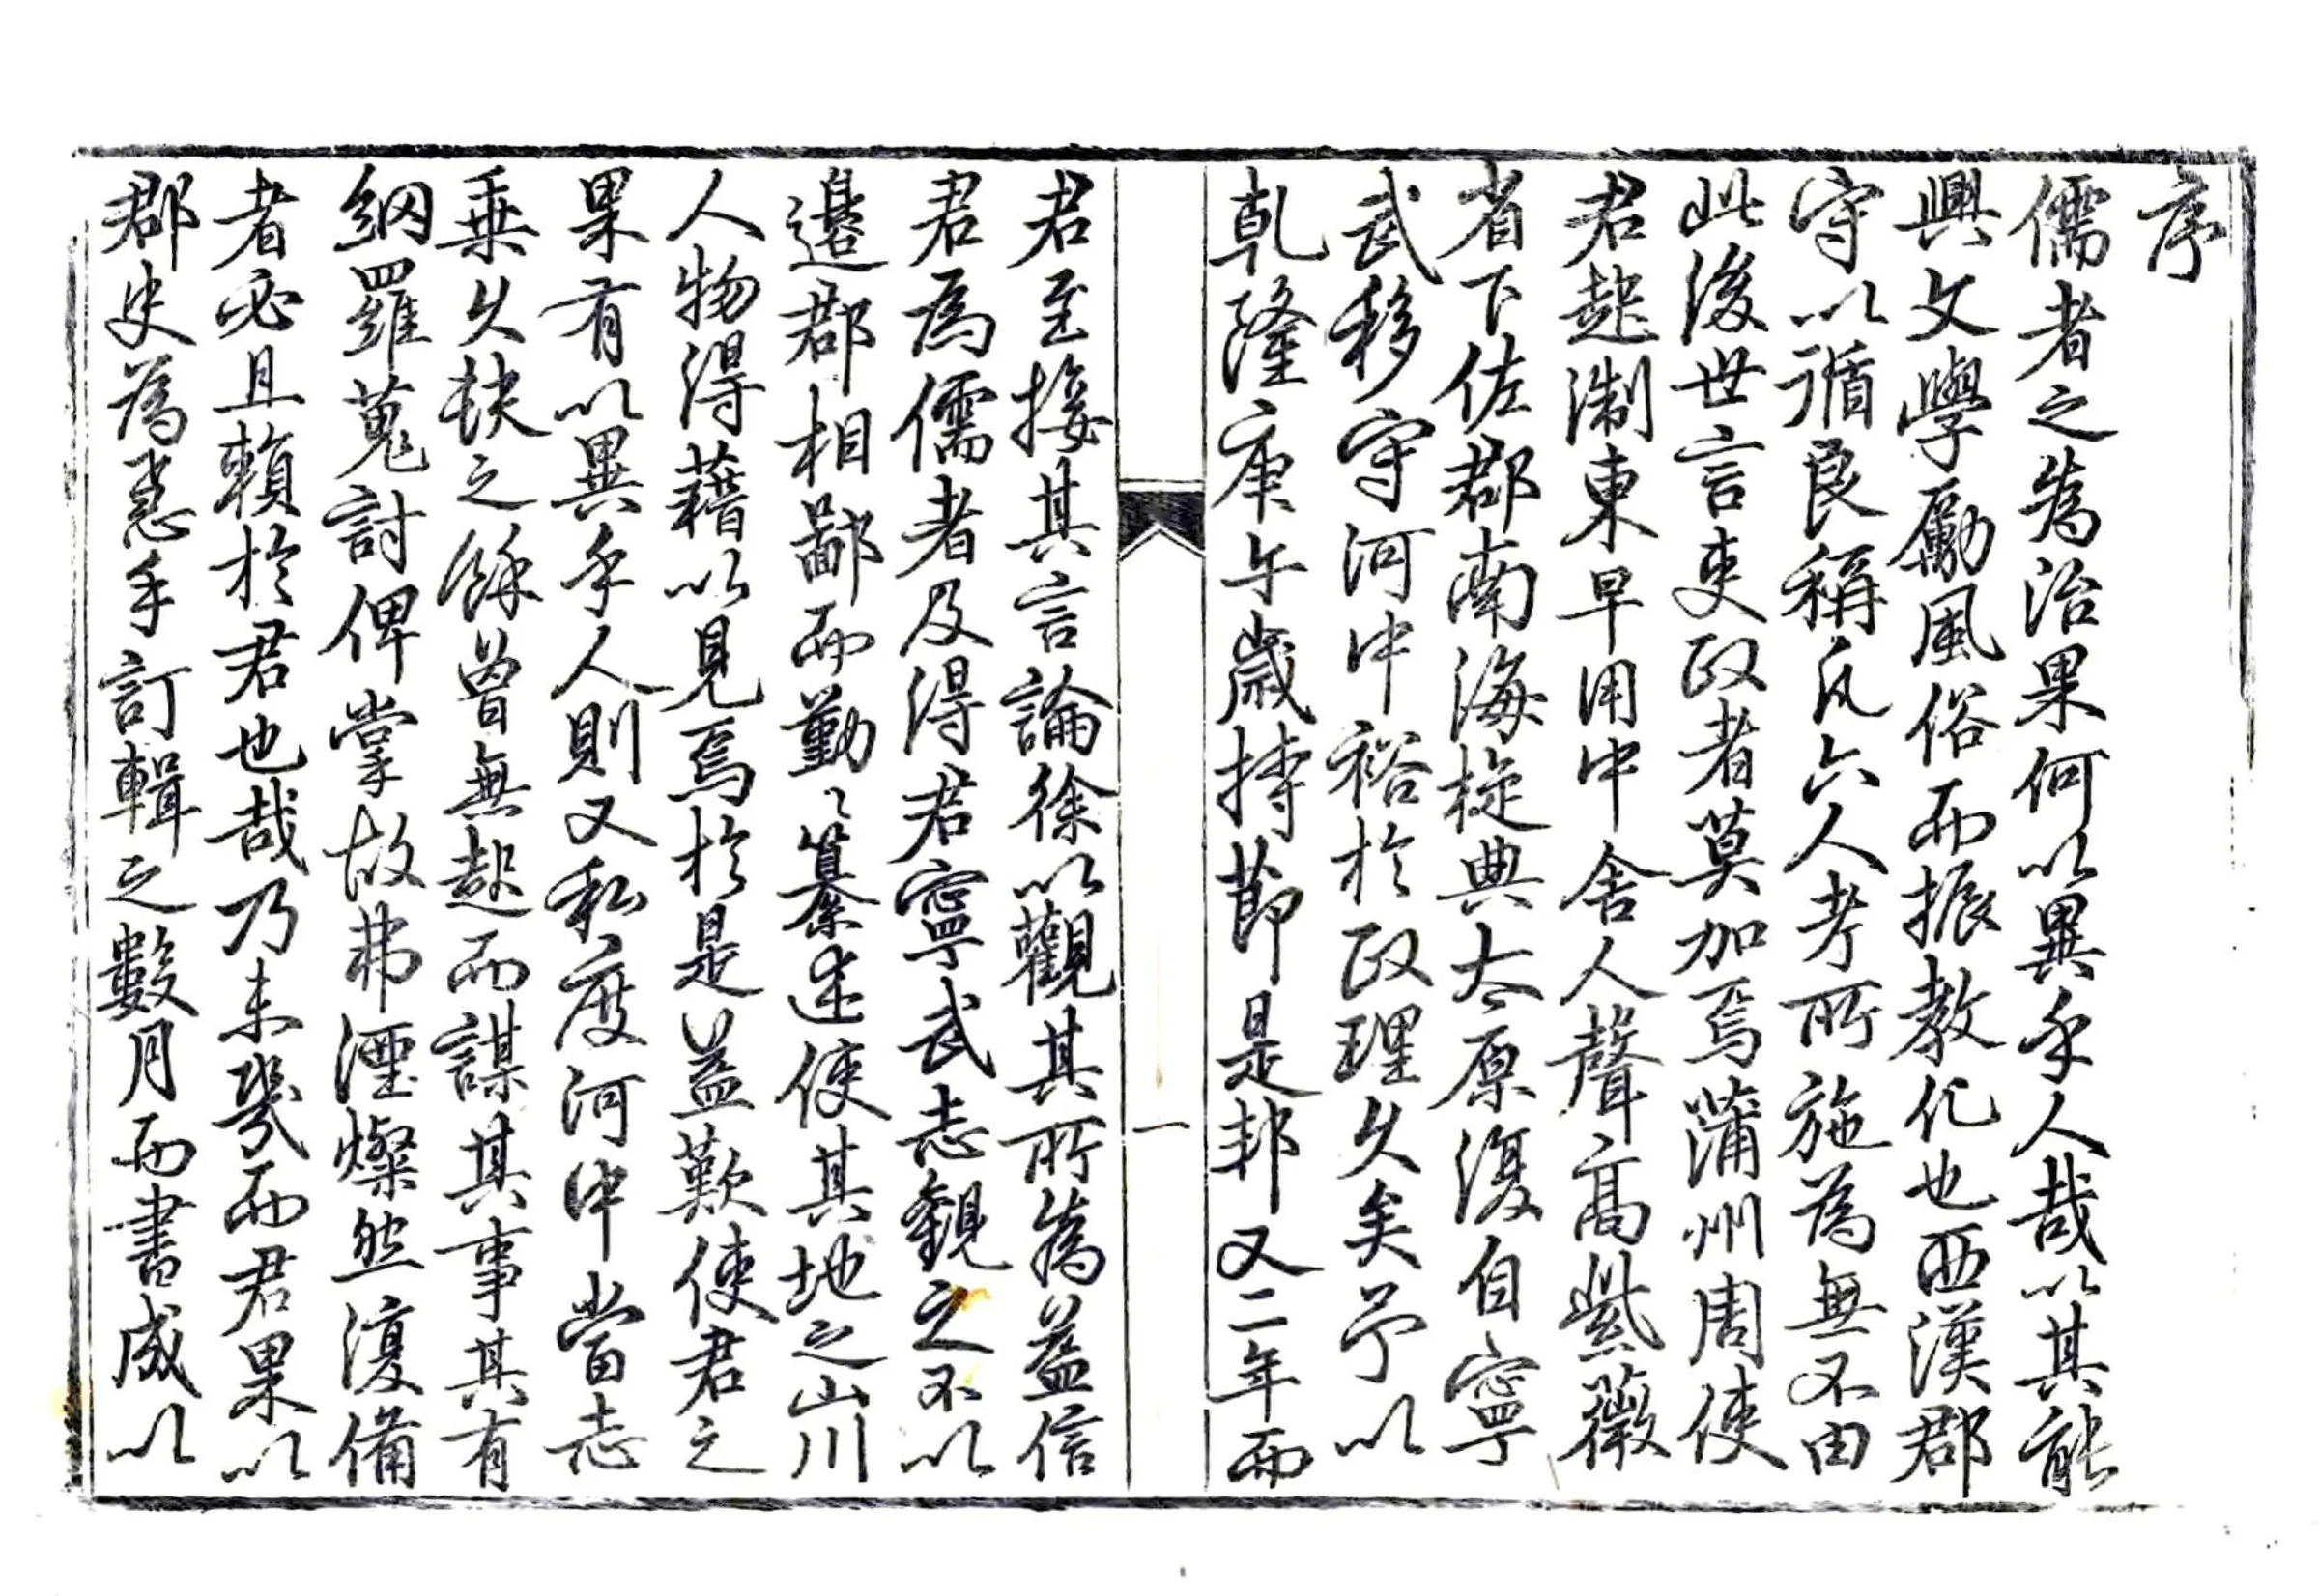 序
儒者之為治果何以異乎人哉以其能
興文學勵風俗而振教化也西漢郡
守以循良稱凡六人考所施為無不由
此後世言吏政者莫加焉蒲州周使
君起淛東早用中舍人聲高紫薇
省下佐郡南海旋典太原復自寧
武移守河中裕於政理久矣予以
乾隆庚午歲持節是邦又二年而
一
君至接其言論徐以觀其所為益信
君為儒者及得君寧武志觀之不以
邊郡相鄙而勤〻纂述使其地之山川
人物得藉以見焉於是益歎使君之
果有以異乎人則又私度河中當志
乘久缺之餘曾無起而謀其事其有
網羅蒐討俾掌故弗湮燦然復備
者必且賴於君也哉乃未幾而君果以
郡史為惠手訂輯之數月而書成以